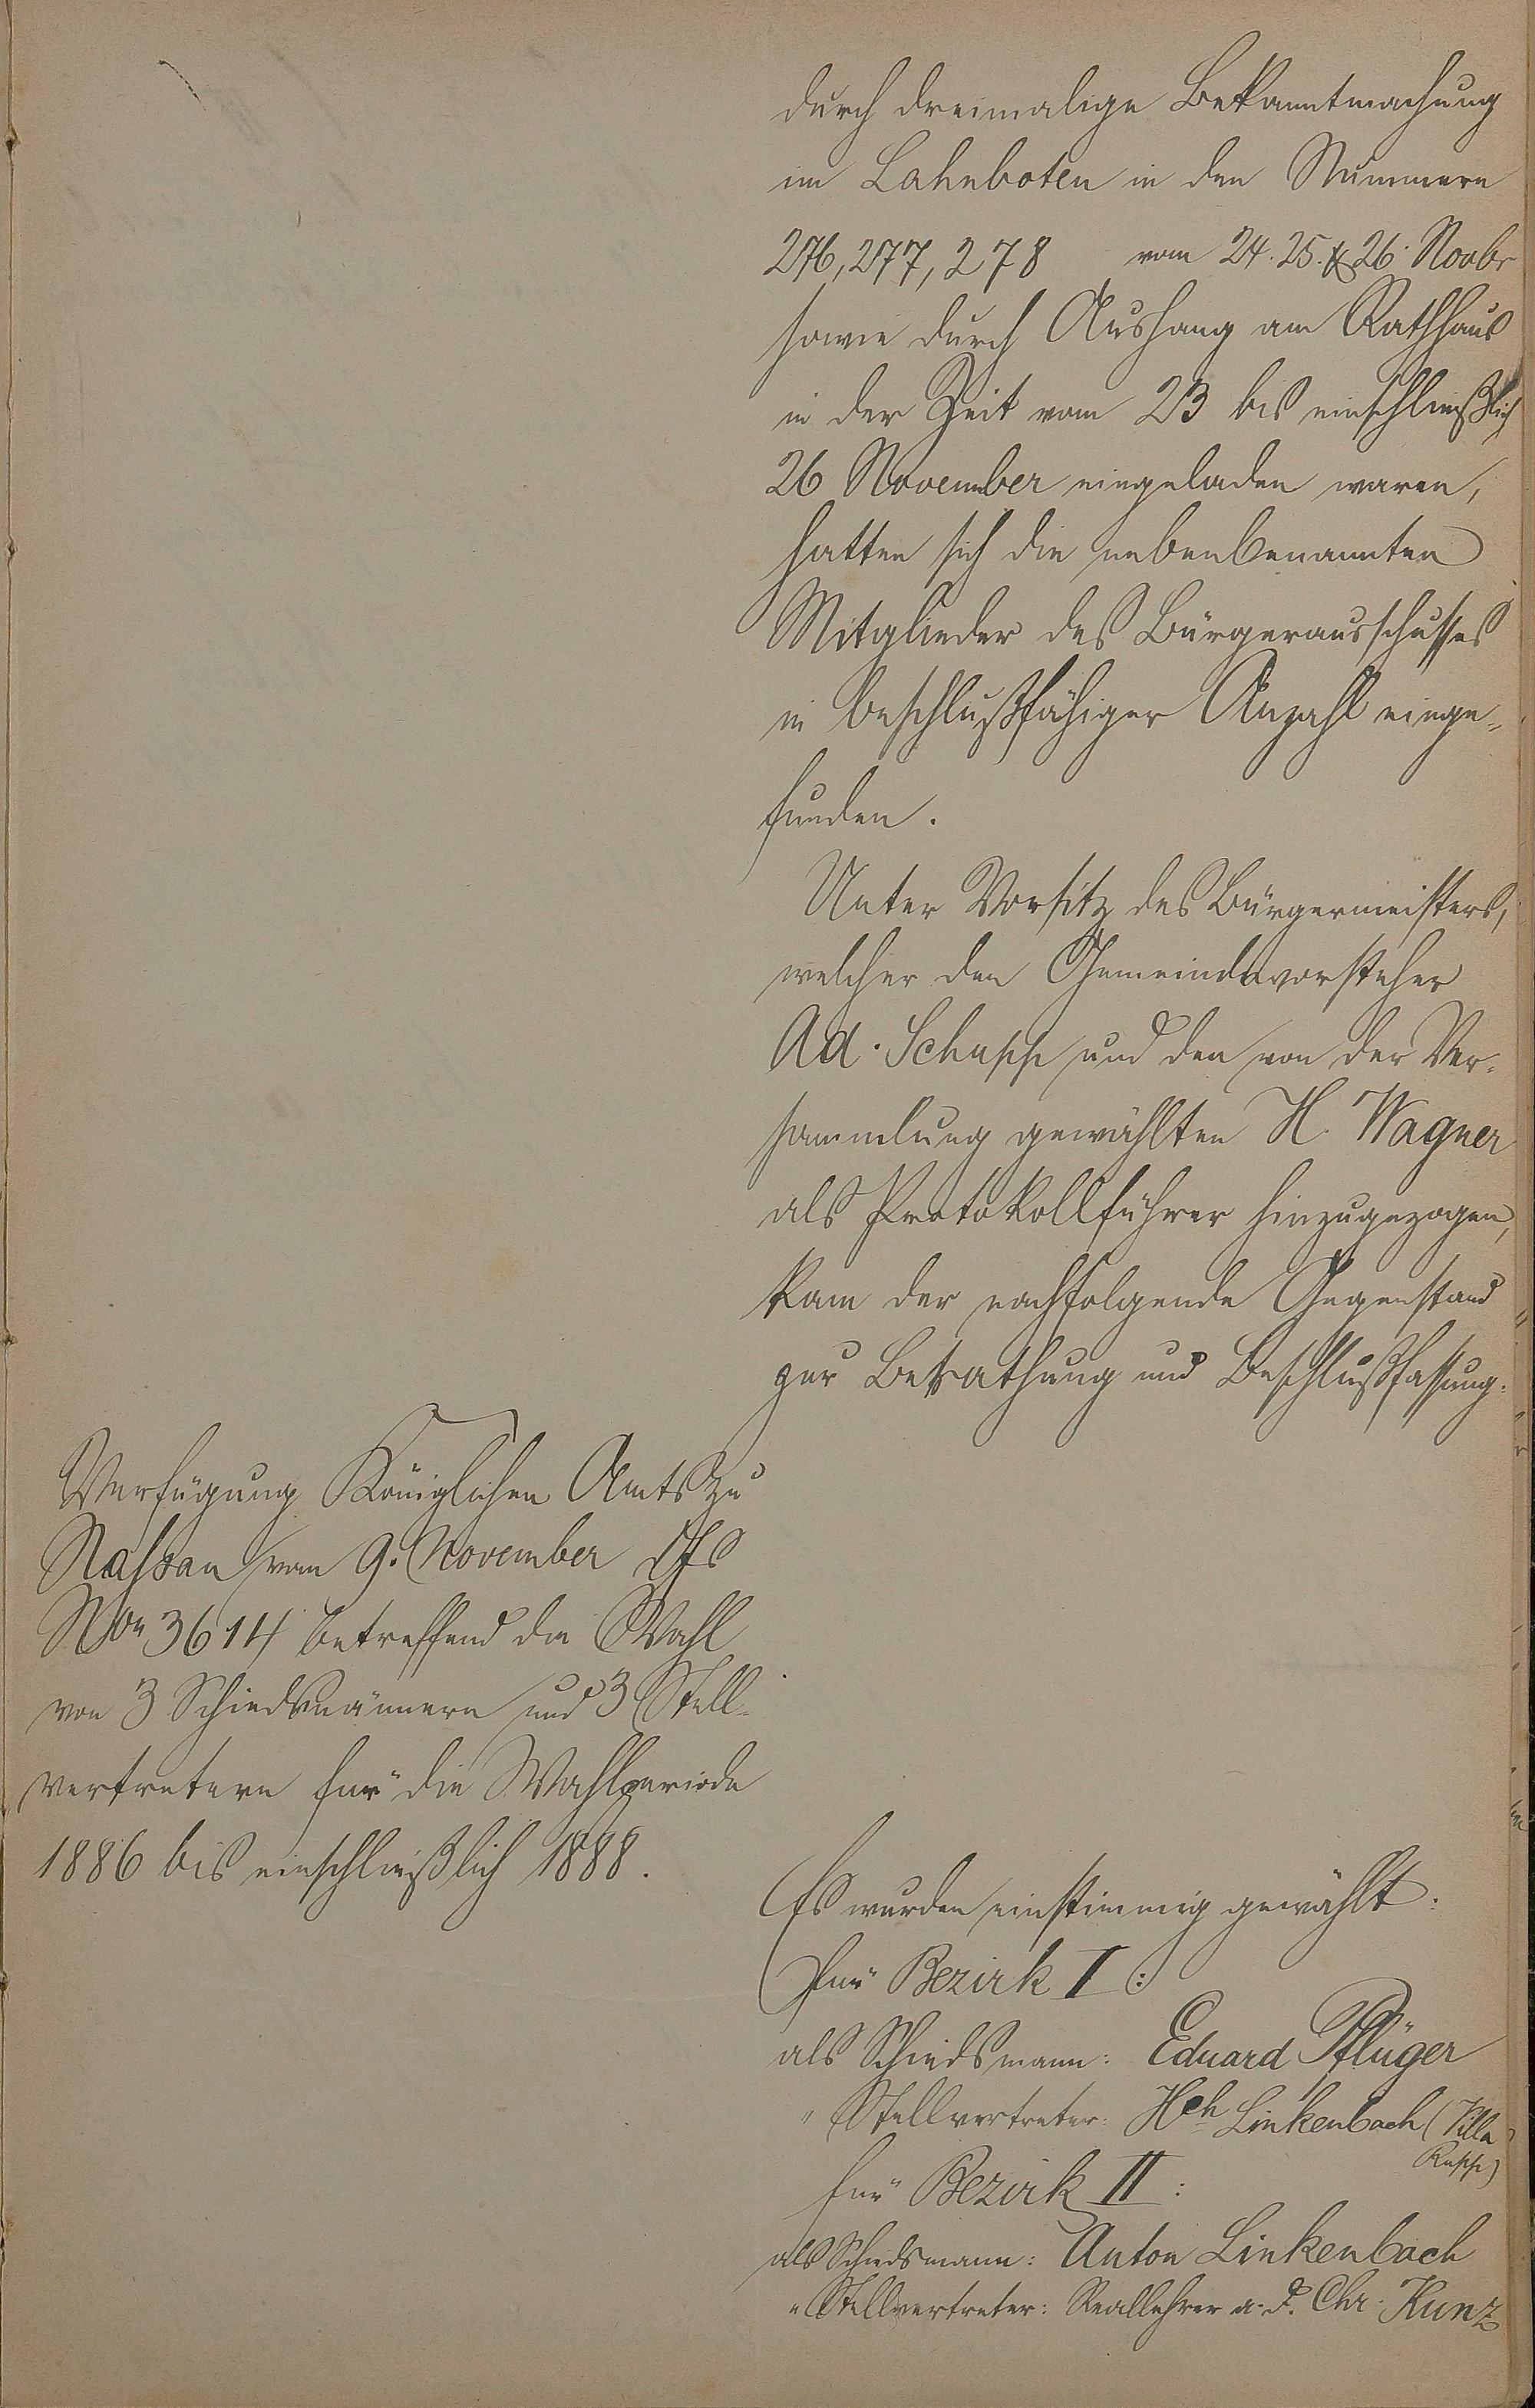 durch dreimalige Bekanntmachung
im Lahnboten in den Nummern
276, 277, 278 vom 24. 25. & 26. Novbr
sowie durch Aushang am Rathhaus
in der Zeit vom 23 bis einschließlich
26 November eingeladen waren,
hatten sich die nebenbenannten
Mitglieder des Bürgerausschusses
in beschlußfähiger Anzahl einge-
funden.
Unter Vorsitz des Bürgermeisters,
welcher den Gemeindevorsteher
Ad. Schupp und den von der Ver-
sammlung gewählten H. Wagner
als Protokollführer hinzugezogen,
kam der nachfolgende Gegenstand
zur Berathung und Beschlußfassung.
Verfügung Königlichen Amts zu
Nassau vom 9. November dJs
Non 3614 betreffend die Wahl
von 3 Schiedsmännern und 3 Stell-
vertretern für die Wahlperiode
1886 bis einschließlich 1888.
Es wurden einstimmig gewählt:
Für Bezirk I:
als Schiedsmann: Eduard Pflüger
" Stellvertreter: Hch Linkenbach (Villa
Rupp)
für Bezirk II:
als Schiedsmann: Anton Linkenbach
" Stellvertreter: Reallehrer a. D. Chr. Kunz